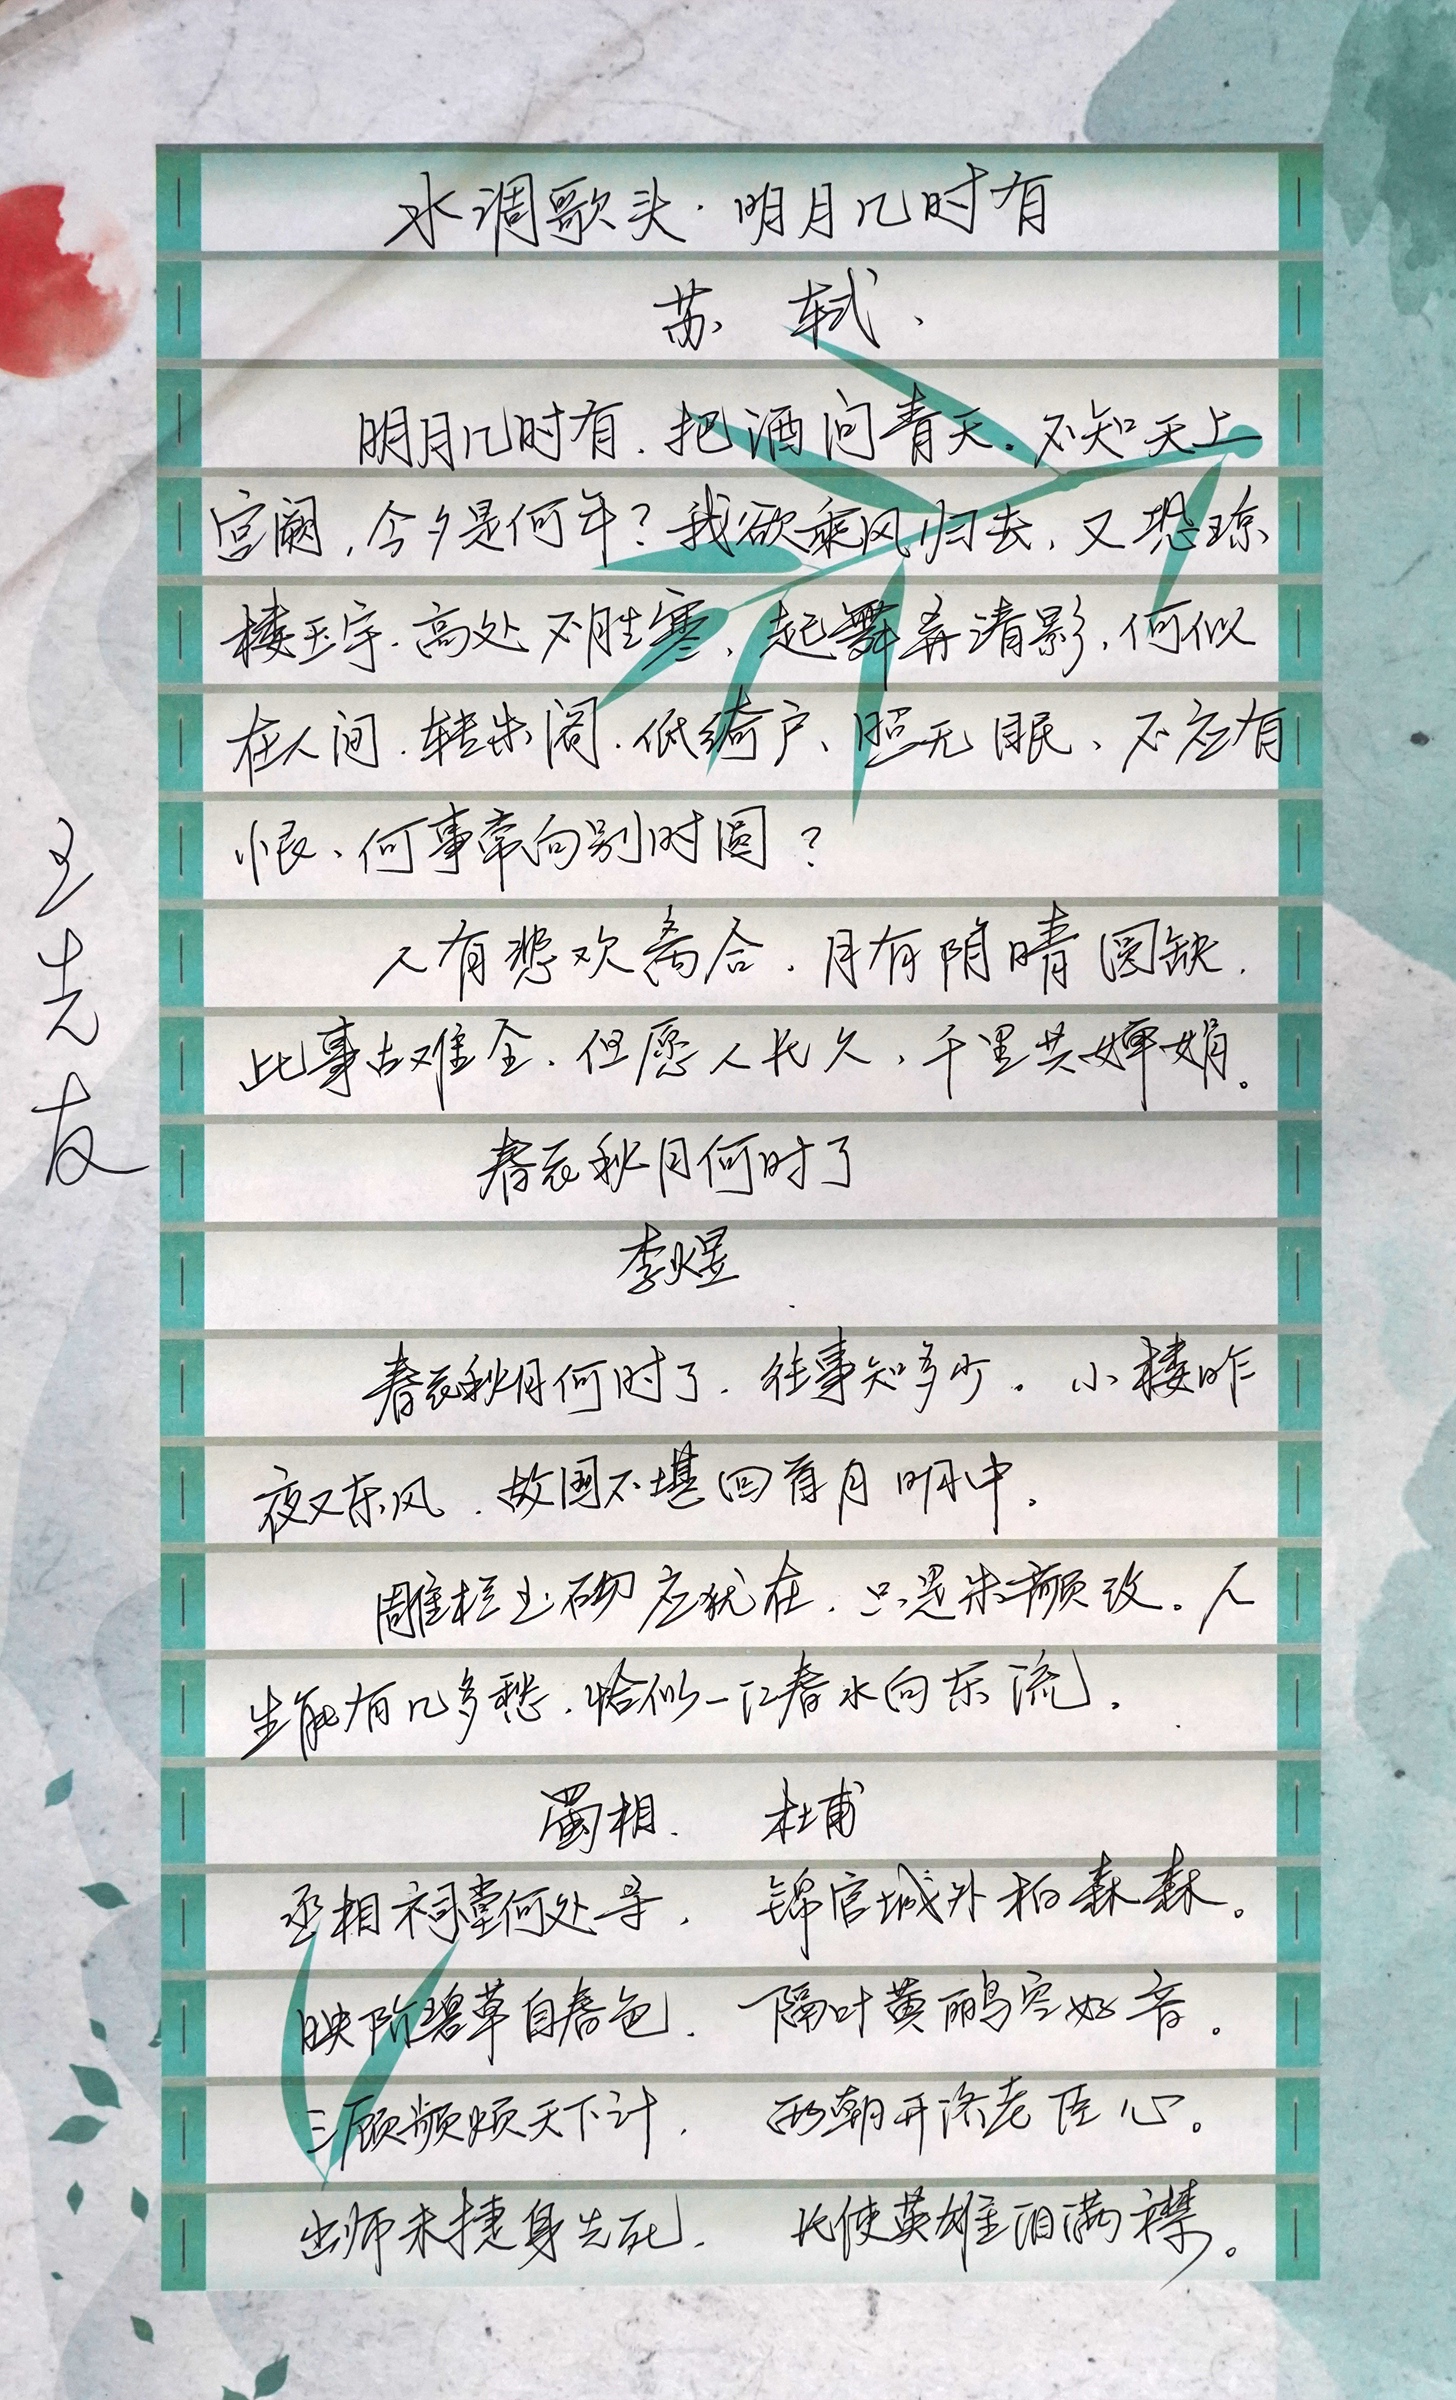 水调歌头·明月几时有
苏 轼、
明月几时有.把酒问青天。不知天上
宫阙,今夕是何年?我欲乘风归去,又恐琼
楼玉宇.高处不胜寒、起舞弄清影,何似
在人间.转朱阁.低绮户、照无眠、不应有
恨、何事常向别时圆?
人有悲欢离合.月有阴晴圆缺.
此事古难全.但愿人长久,千里共婵娟。
春花秋月何时了
李煜
春花秋月何时了.往事知多少。小楼昨
夜又东风.故国不堪回首月明中.
雕栏玉砌应犹在.只是朱颜改。人
生能有几多愁.恰似一江春水向东流.
蜀相. 杜甫
丞相祠堂何处寻, 锦官城外柏森森。
映阶碧草自春色. 隔叶黄鹂空好音。
三顾频烦天下计, 两朝开济老臣心。
出师未捷身先死, 长使英雄泪满襟。
王先友